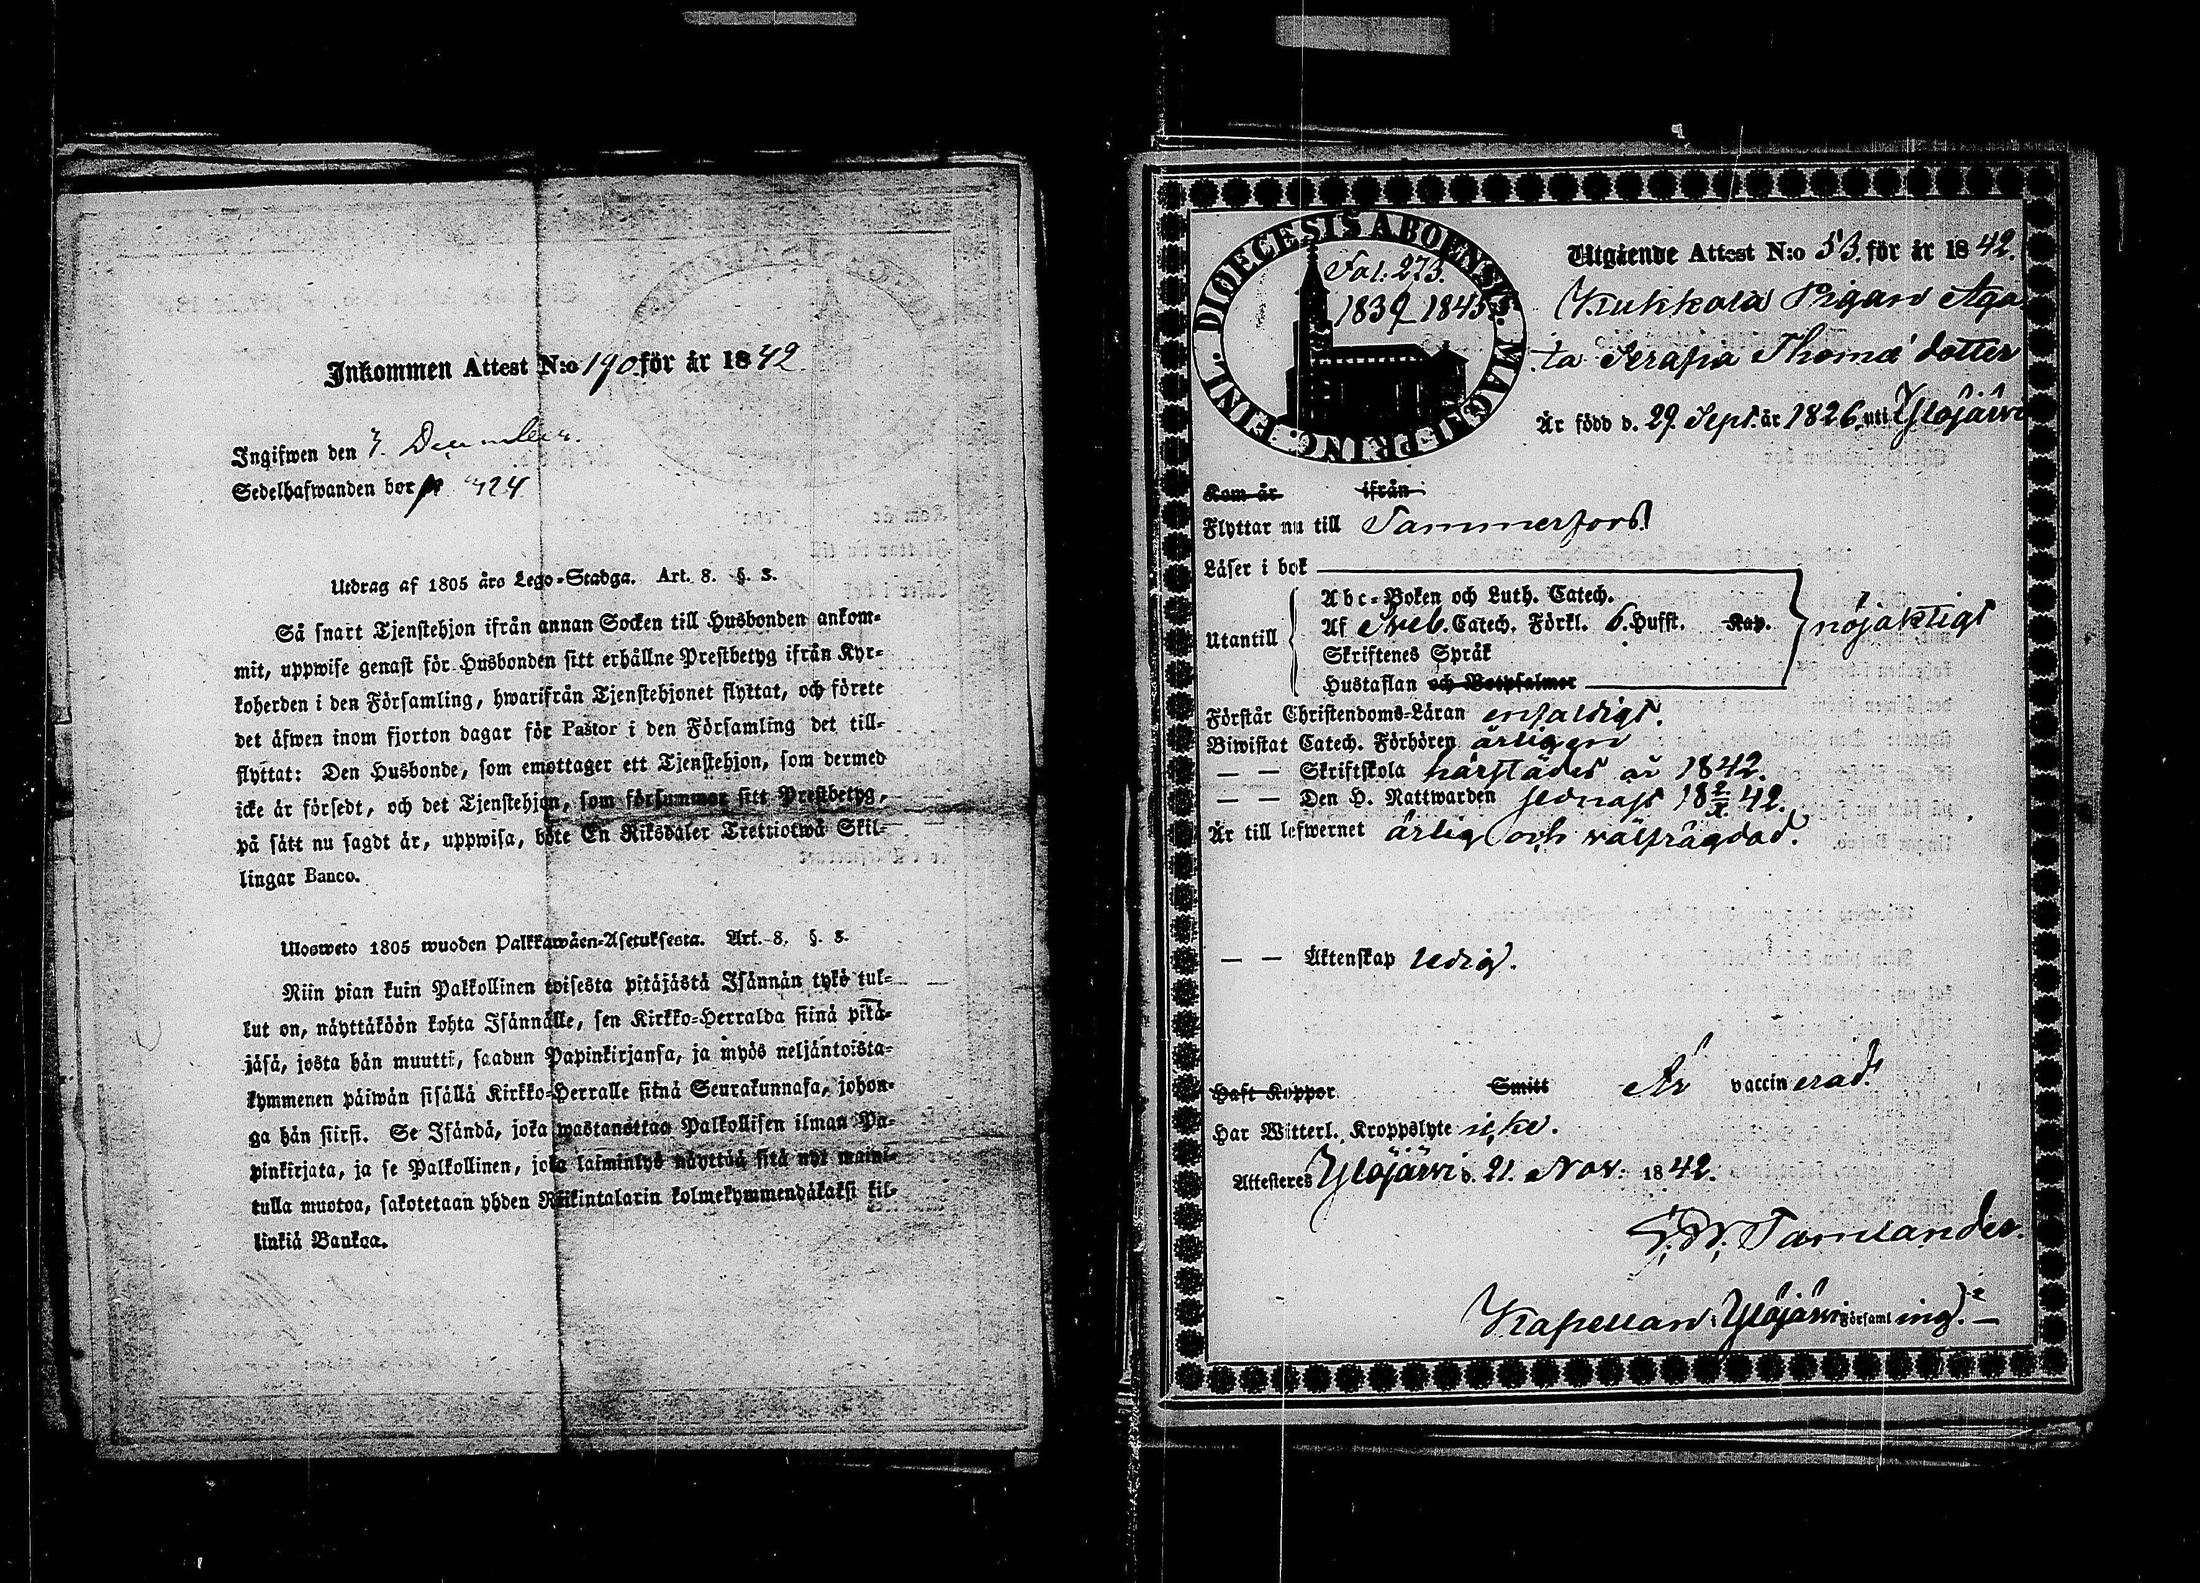 Inkommen Attest N:o 190 för år 1842.
Ingifwen den 7. December.
Sedelhafwanden bor p 424
Utdrag af 1805 års Lego-Stadga. Art. 8. §. 3.
Så snart Tjenstehjon ifrån annan Socken till Husbonden ankom-
mit, uppwise genast för Husbonden sitt erhållne Prestbetyg ifrån Kyr-
koherden i den Församling, hwarifrån Tjenstehjonet flyttat, och förete
det äfwen inom fjorton dagar för Pastor i den Församling det till-
flyttat: Den Husbonde, som emottager ett Tjenstehjon, som dermed
icke är försedt, och det Tjenstehjon, som försummar sitt Prestbetyg,
på sätt nu sagdt är, uppwisa, böte En Riksdaler Trettiotwå Skil-
lingar Banco.
Ulosweto 1805 wuoden Palkkawäen-Asetuksesta. Art. 8. §. 3.
Niin pian kuin Palkollinen toisesta pitäjästä Isännän tykö tul-
lut on, näyttäköön kohta Isännälle, sen Kirkko-Herralda siinä pitä-
jäsä, josta hän muutti, saadun Papinkirjansa, ja myös neljäntoista-
kymmenen päiwän sisällä Kirkko-Herralle siinä Seurakunnasa, johon-
ga hän siirsi. Se Isändä, joka wastanottaa Palkollisen ilman Pa-
pinkirjata, ja se Palkollinen, joka laiminlyö näyttää sitä nyt maini-
tulla muotoa, sakotetaan yhden Riikintalarin kolmekymmendäkaksi kil-
linkiä Bankoa.
DIOECESIS ABOENSIS. MAGNI PRINC. FINL.
Fol. 273.
1839-1845.
Utgående Attest N:o 53. för år 1842.
Kukkola Pigan Aga
ta Serafia Thomæ dotter
Är född d. 29. Sept. år 1826 uti Ylöjärvi
Kom år ifrån
Flyttar nu till Tammerfors.
Läser i bok
Utantill
Abc-Boken och Luth. Catech.
Af Sveb. Catech. Förkl. 6. Hufst. Kap.
Skriftenes Språk
Hustaflan och Botpsalmer
nöjaktigt
Förstår Christendoms-Läran enfaldigt.
Biwistat Catech. Förhören årligen
— — Skriftskola härstädes år 1842.
— — Den H. Nattwarden sednast 18 2/X. 42.
Är till lefwernet ärlig och välfrägdad.
— — Äktenskap ledig.
Haft Koppor Smitt Är vaccinerad.
Har Witterl. Kroppslyte icke.
Attesteres Ylöjärvi d. 21. Nov. 1842.
Tamlander.
Kapellan i Ylöjärvi Församling. —